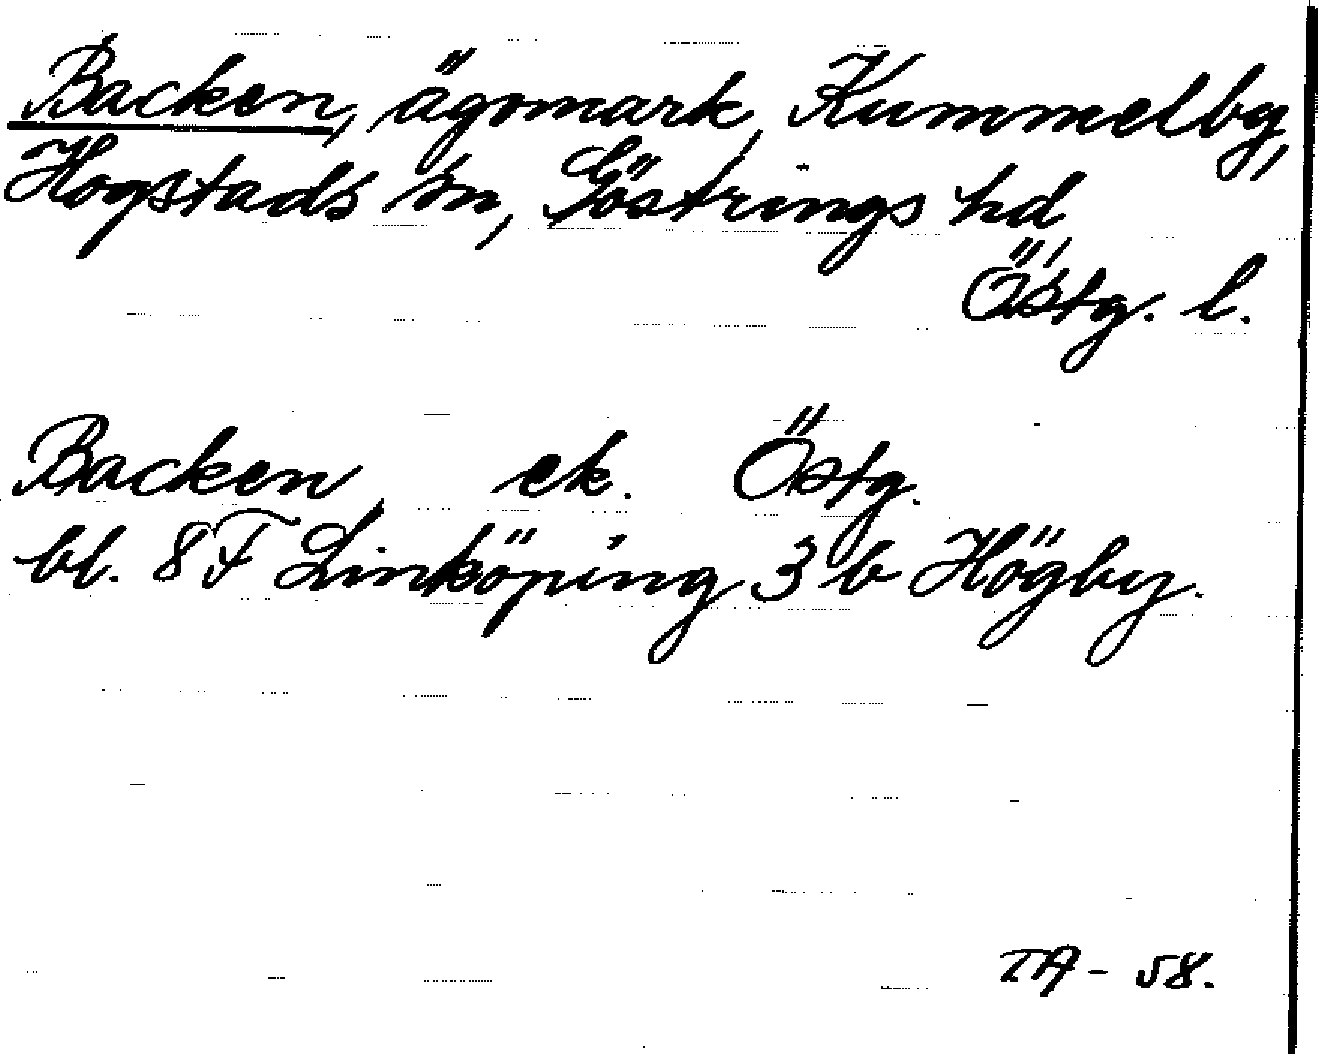 Backen, ägomark, Kummelby,
Hogstads sn, Göstrings hd,
Östg. l.
Backen, ek. Östg.
bl. 8F Linköping 3 b Högby.
TA - 58.